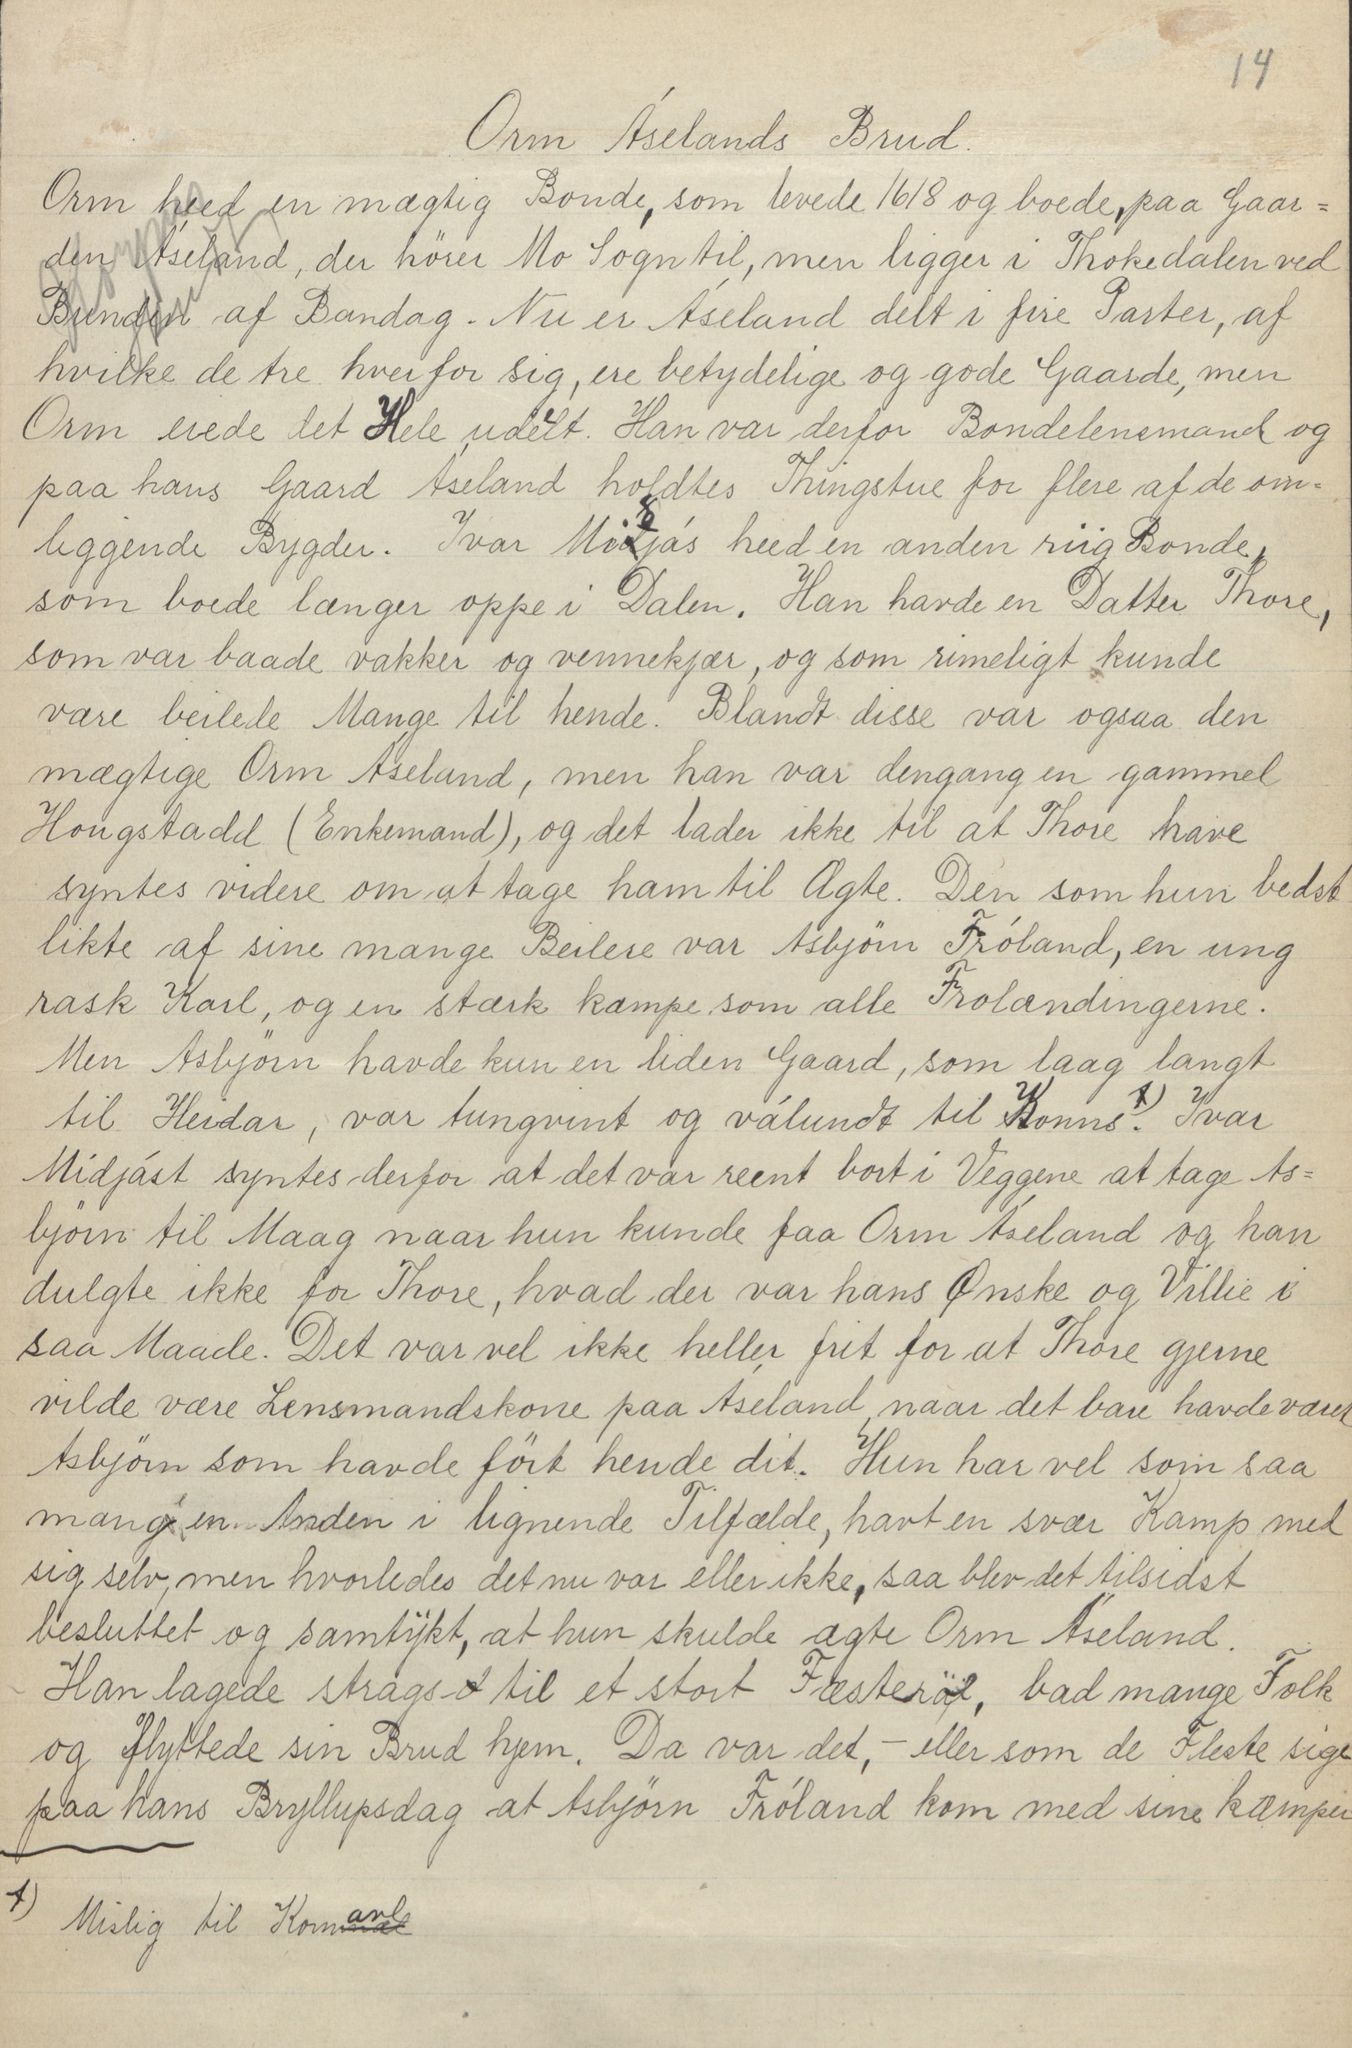 14
Orm Áselands Brud.
Orm heed en mægtig Bonde, som levede 1618 og boede, paa Gaar=
den Áseland, der hörer Mo Sogn til, men ligger i Thokedalen ved
Bunden af Bandag. Nu er Áseland delt i fire Parter, af
hvilke de tre hver for sig, ere betydelige og gode Gaarde, men
Orm eiede det Hele udelt. Han var derfor Bondelensmand og
paa hans Gaard Áseland holdtes Thingstue for flere af de om=
liggende Bygder. Ivar Midjás heed en anden riig Bonde,
som boede længer oppe i Dalen. Han havde en Datter Thore,
som var baade vakker og vennekjær, og som rimeligt kunde
være beilede Mange til hende. Blandt disse var ogsaa den
mægtige Orm Áseland, men han var dengang en gammel
Hougstadd (Enkemand), og det lader ikke til at Thore have
syntes videre om at tage ham til Ægte. Den som hun bedst
likte af sine mange Beilere var Asbjörn Fróland, en ung
rask Karl, og en stærk kæmpe som alle Frolændingerne.
Men Asbjörn havde kun en liden Gaard, som laag langt
til Heidar, var tungvint og válundt til Konns. †) Ivar
Midjást syntes derfor at det var reent bort i Veggene at tage As=
björn til Maag naar hun kunde faa Orm Áseland og han
dulgte ikke for Thore, hvad der var hans Ønske og Villie i
saa Maade. Det var vel ikke heller frit for at Thore gjerne
vilde være Lensmandskone paa Áseland naar det bare havde været
Asbjörn som havde fört hende dit. Hun har vel som saa
mangen Anden i lignende Tilfælde, havt en svær Kamp med
sig selv, men hvorledes det nu var eller ikke, saa blev det tilsidst
besluttet og samtÿkt, at hun skulde ægte Orm Áseland.
Han lagede strags til et stort Fæsteröl, bad mange Folk
og flyttede sin Brud hjem. Da var det, – eller som de Fleste sige
paa hans Bryllupsdag at Asbjörn Fróland kom med sine kæmper
†) Mislig til Kornavl